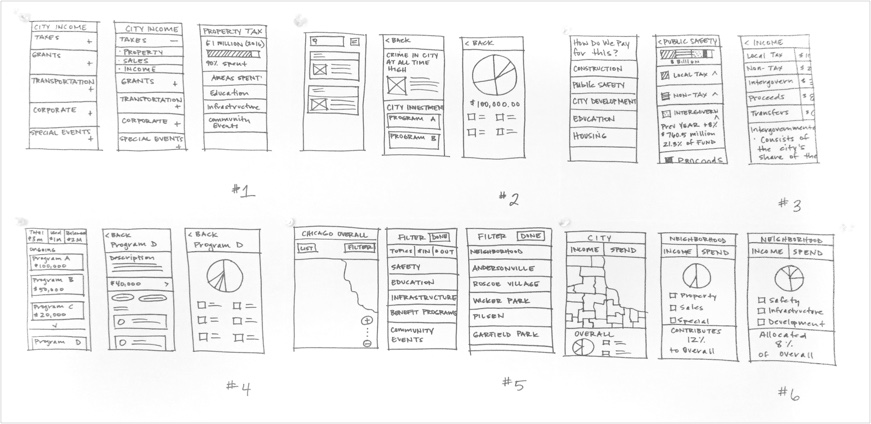 CITY INCOME
TAXES +
GRANTS +
TRANSPORTATION +
CORPORATE +
SPECIAL EVENTS +
CITY INCOME
TAXES —
· PROPERTY
· SALES
· INCOME
GRANTS +
TRANSPORTATION +
CORPORATE +
SPECIAL EVENTS +
PROPERTY TAX
90% spent
AREAS SPENT
Education
Infrastructure
Community
Events
#1
< BACK
CRIME IN CITY
AT ALL TIME
HIGH
CITY INVESTMENT
PROGRAM A
PROGRAM B
< BACK
$100,000.00
#2
How Do We Pay
for this?
CONSTRUCTION
Public SAFETY
CITY DEVELOPMENT
EDUCATION
HOUSING
< PUBLIC SAFETY
$ Billion
LOCAL TAX ^
NON-TAX ^
INTERGOVERN ^
Prev YEAR +8%
$760.5 million
21.3% of FUND
Proceeds
< INCOME
Local Tax
Non-Tax
Intergovern
Proceeds
Transfers
Intergovernmenta
· Consists of
the city's
share of the
#3
Total
ONGOING
Program A
$100,000
Program B
$50,000
Program C
$20,000
Program D
< BACK
Program D
Description
$40,000 >
< BACK
Program D
#4
CHICAGO OVERALL
LIST FILTER
FILTER DONE
TOPICS $IN $OUT
SAFETY
EDUCATION
INFRASTRUCTURE
BENEFIT PROGRAMS
COMMUNITY
EVENTS
FILTER DONE
NEIGHBORHOOD
ANDERSONVILLE
ROSCOE VILLAGE
WICKER PARK
PILSEN
GARFIELD PARK
#5
CITY
INCOME SPEND
OVERALL
NEIGHBORHOOD
INCOME SPEND
Property
Sales
Special
CONTRIBUTES
12%
to Overall
NEIGHBORHOOD
INCOME SPEND
Safety
Infrastructure
Development
Allocated
8%
of overall
#6